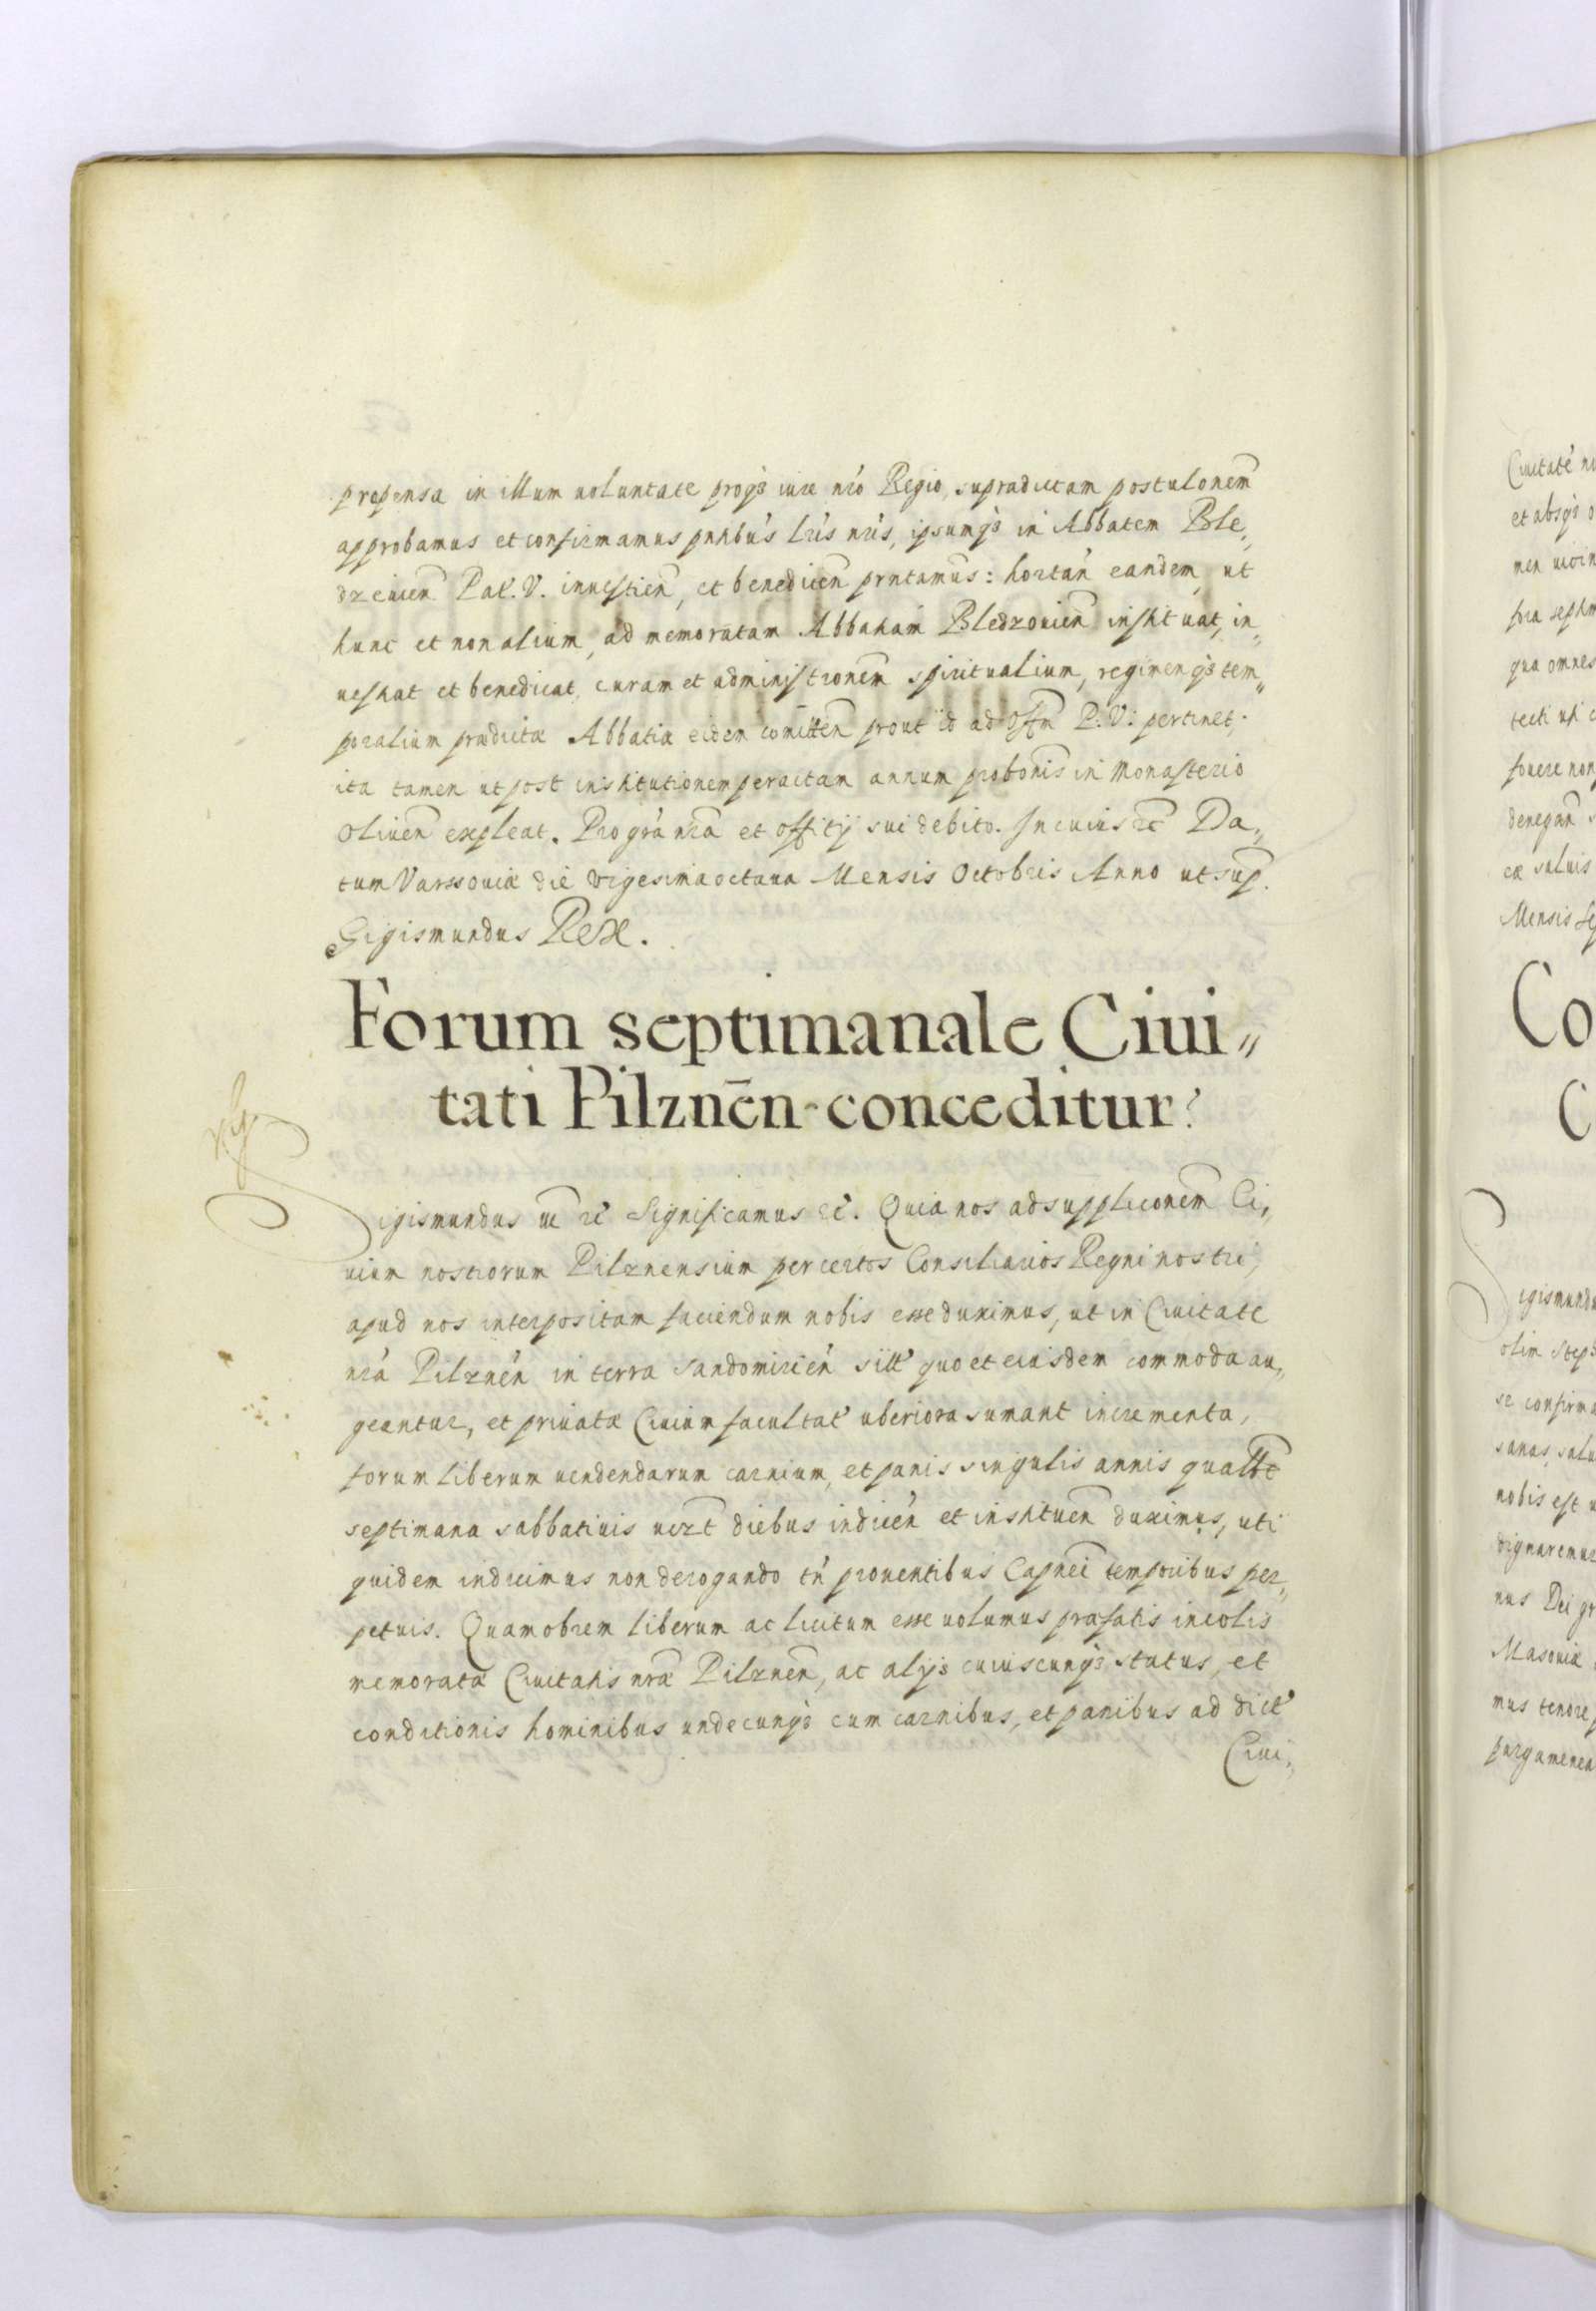 propensa in illum voluntate proq3 iure nrõ Regio, supradictam postulonem
approbamus et confirmamus pntibus lris nris, ipsumq3 in Abbatem Ble„
dzeuien Pat. V. inuestien, et benedicen prntamus: hortan eandem, ut
hunc et non alium, ad memoratam Abbatiam Bledzouien instituat, in„
uestiat et benedicat, curam et administronem spiritualium, regimenq3 tem„
poralium prædictæ Abbatiæ eidem comitten prout id ad Offm P. V. pertinet.
ita tamen ut post institutionem peractam annum probonis in Monasterio
Oliuen expleat. Pro gra nra et offitij sui debito. In cuius rc Da„
tum Varssouiæ die vigesima octaua Mensis Octobris Anno ut sup.
Sigismundus Rex.
Forum septimanale Ciui„
tati Pilznēn conceditur.
Sigismundus rc Significamus rc. Quia nos ad suppliconem Ci„
uium nostrorum Pilznensium per certos Consiliarios Regni nostri,
apud nos interpositam faciendum nobis esse duximus, ut in Ciuitate
nra Pilznen in terra Sandomirien sitt quo et eiusdem commoda au„
geantur, et priuatæ Ciuium facultat uberiora sumant incrementa,
forum liberum uendendarum carnium, et panis singulis annis qualbt
septimana sabbatiuis uerzt diebus indicen et instituen duximus, uti
quidem indicimus non derogando tn prouentibus Capnei temporibus per„
petuis. Quamobrem liberum ac licitum esse uolumus præfatis incolis
memoratæ Ciuitatis nræ Pilznen, ac alijs cuiuscunq3 status, et
conditionis hominibus undecunq3 cum carnibus, et panibus ad dict
Ciui„